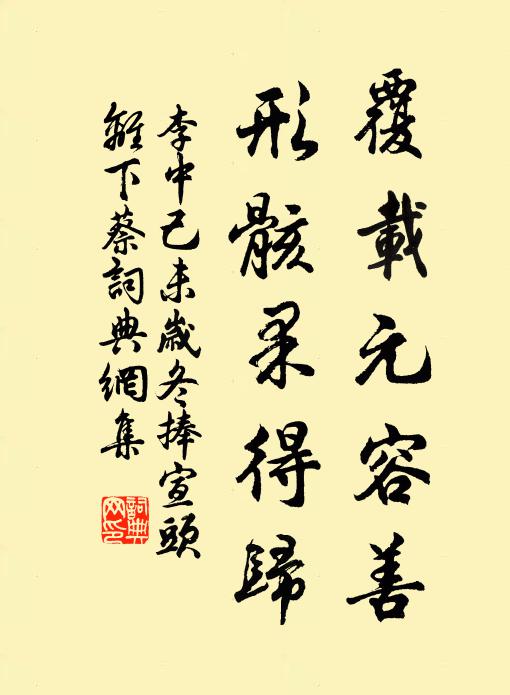 覆載元容善
形骸果得歸
李中己未歲冬捧宣頭
離下蔡詞典網集
詞典
网印